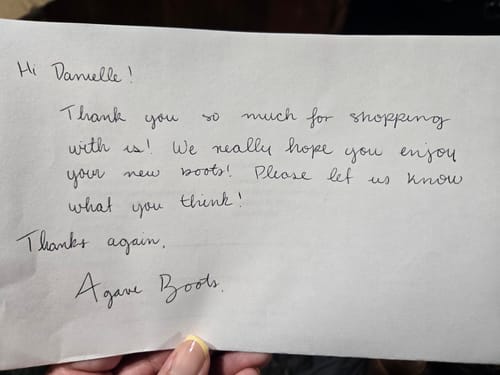 Hi Danielle!
Thank you so much for shopping
with us! We really hope you enjoy
your new boots! Please let us know
what you think!
Thanks again,
Agave Boots.